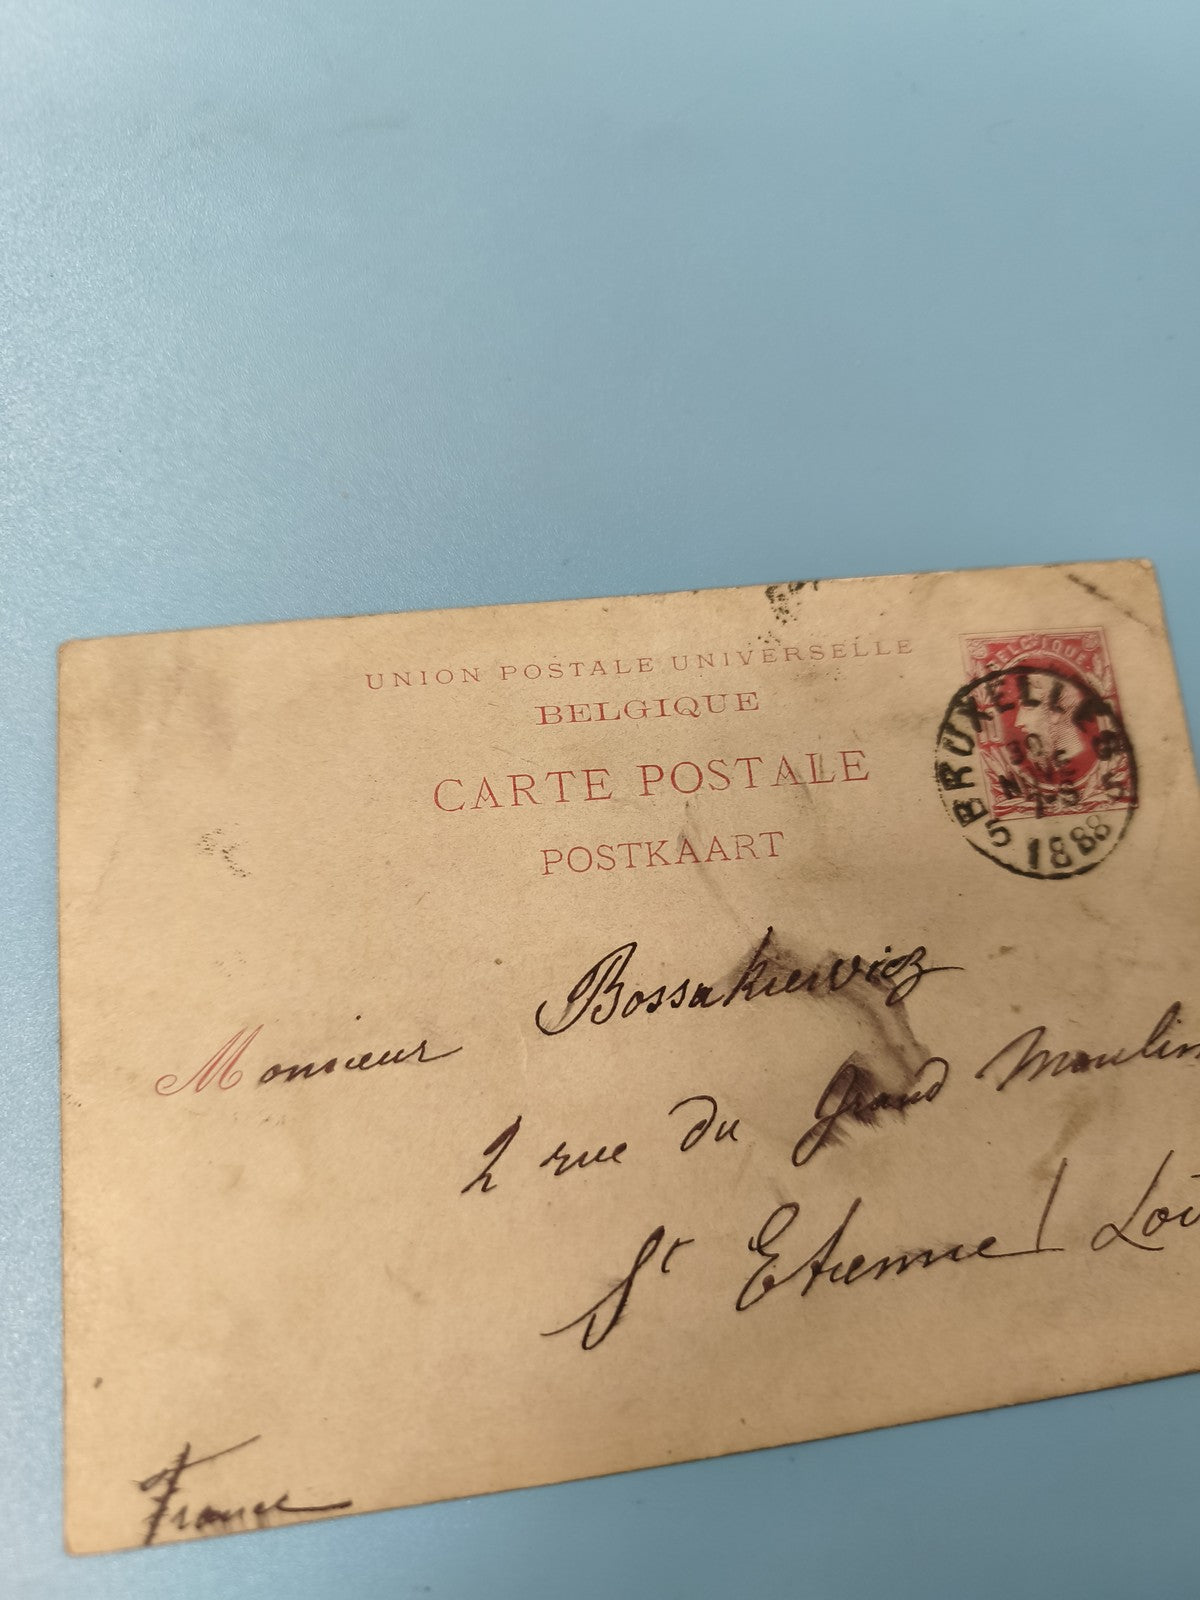 UNION POSTALE UNIVERSELLE
BELGIQUE
CARTE POSTALE
POSTKAART
BELGIQUE
BRUXELLES
1888
Monsieur Bossakiewicz
2 rue du Grand Moulin
St Etienne Loi
France